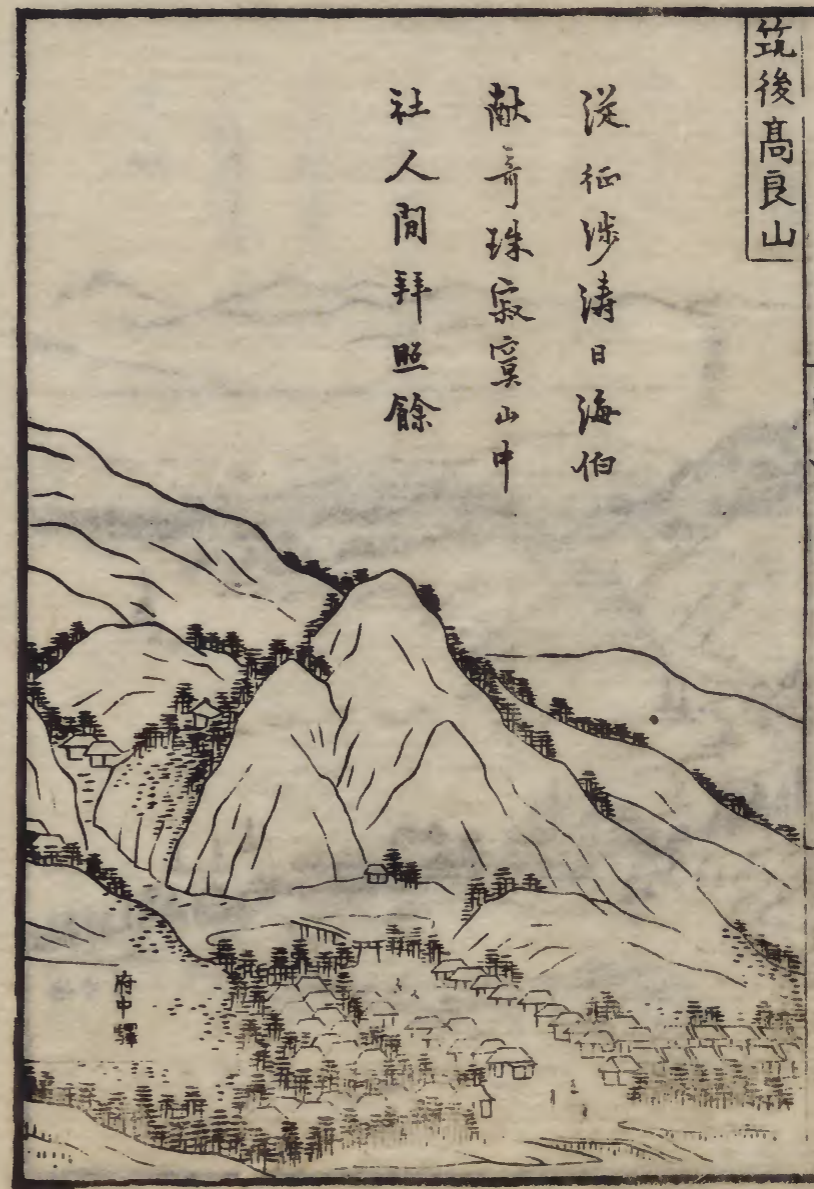 筑後髙良山
從征渉濤日海伯
献奇珠寂寞山中
社人間拜照餘
府中驛